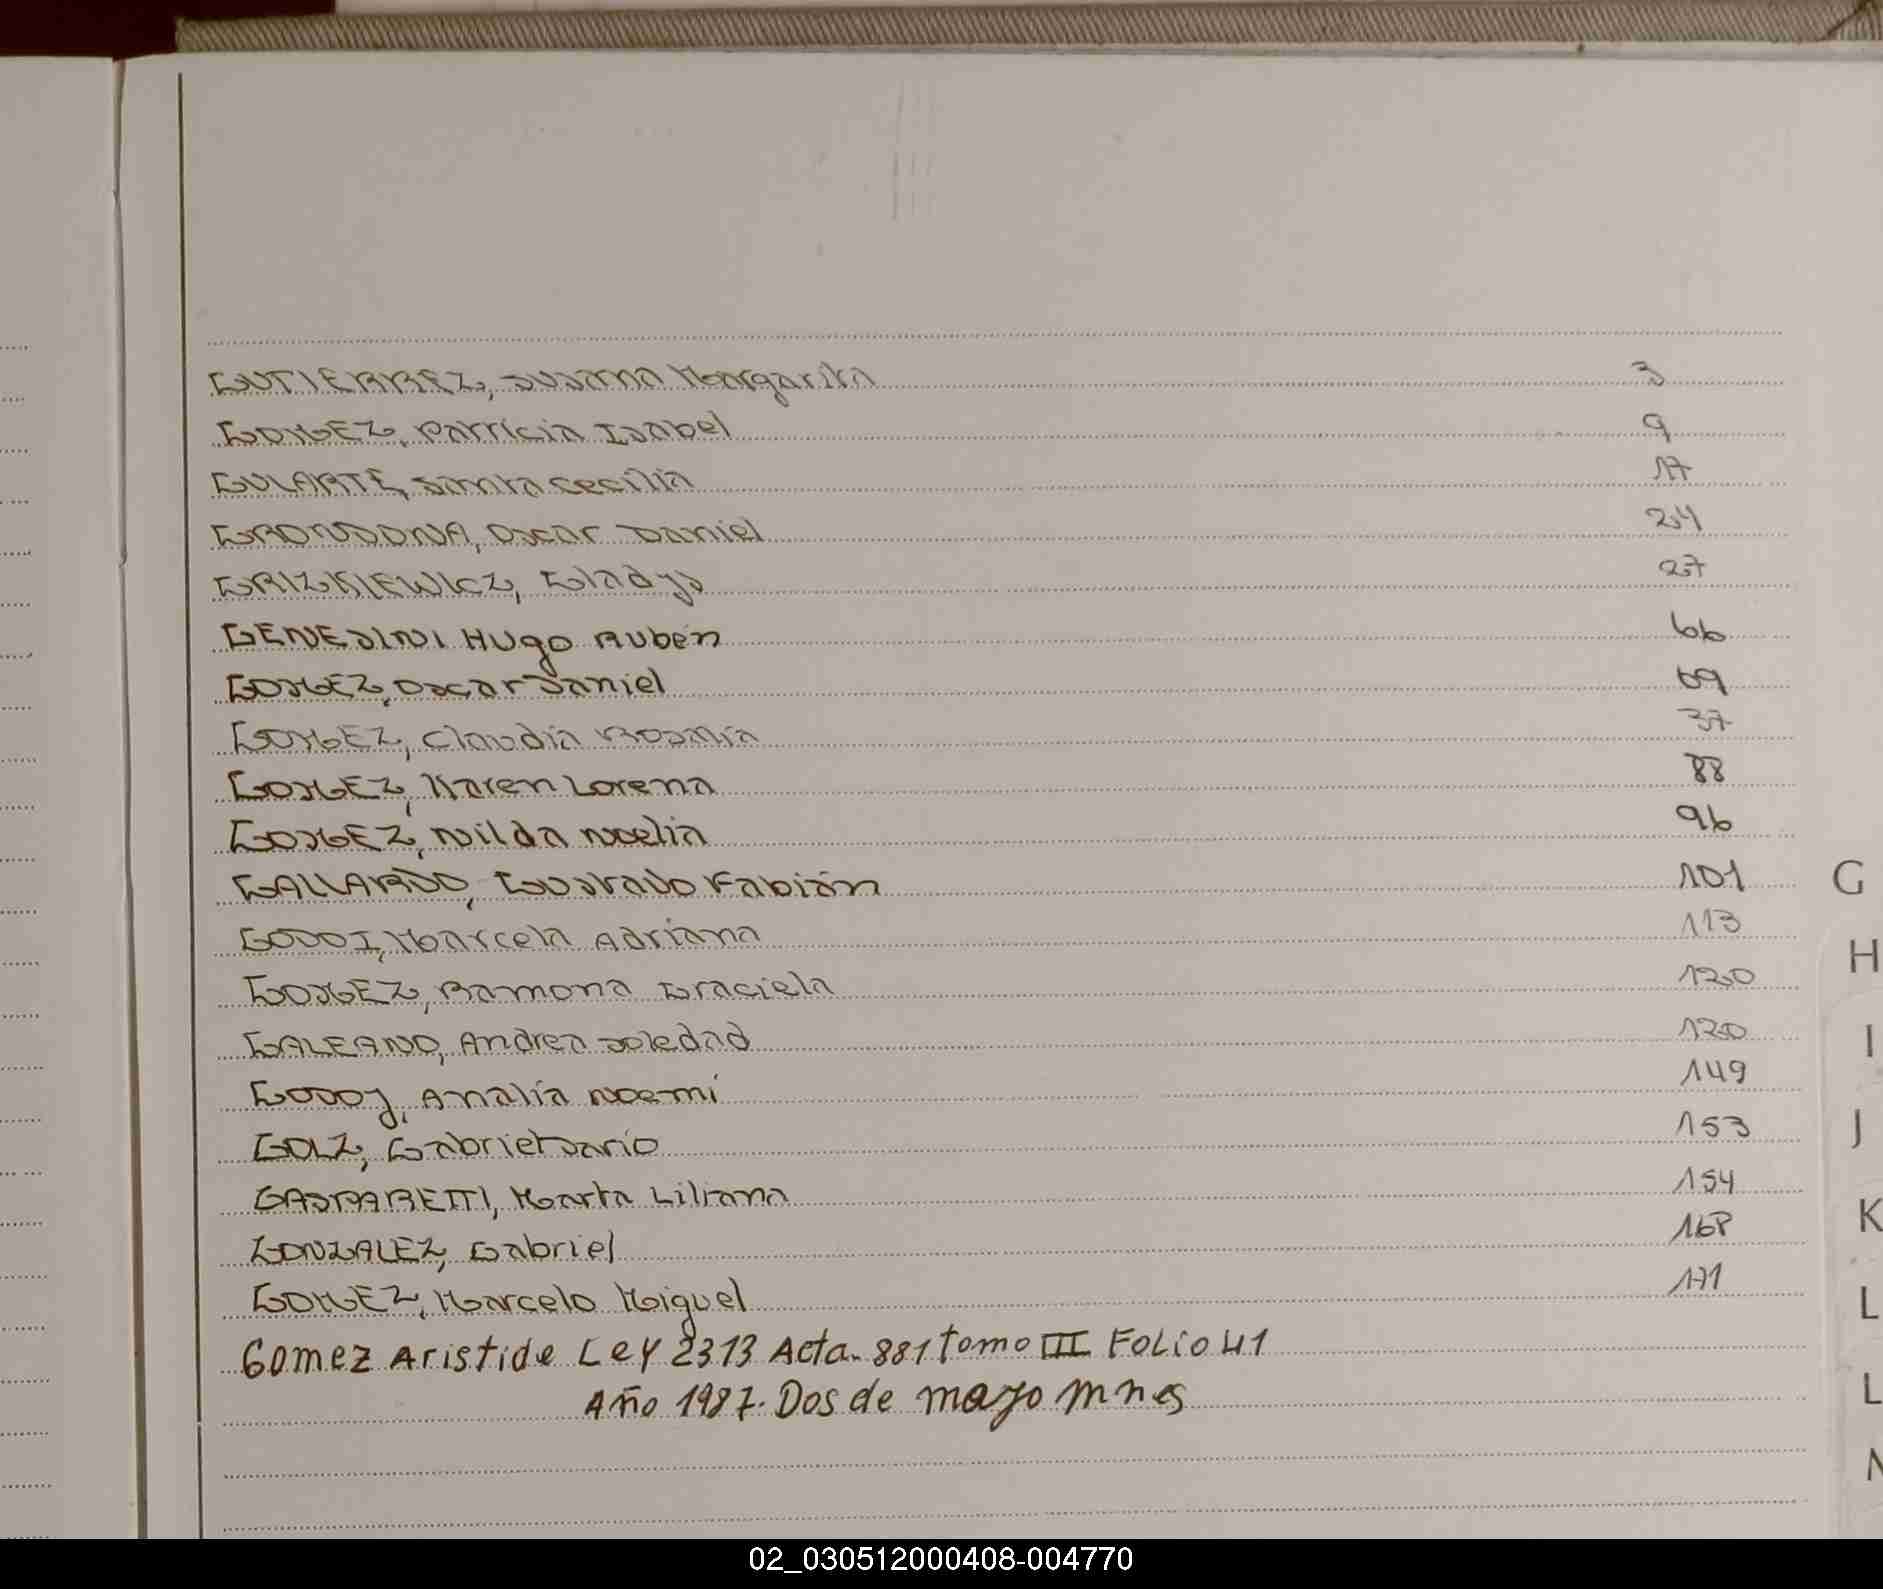 GUTIERREZ, Susana Margarita 3
GOMEZ, Patricia Isabel 9
GULARTE, Santa Cecilia 17
GRONDONA, Oscar Daniel 24
GRIZKIEWICZ, Gladys 27
GENESINI Hugo Rubén 66
GOMEZ, Oscar Daniel 69
GOMEZ, Claudia Rosalia 37
GOMEZ, Karen Lorena 88
GOMEZ, Nilda Noelia 96
GALLARDO, Gustavo Fabián 101
GODOI, Marcela Adriana 113
GOMEZ, Ramona Graciela 120
GALEANO, Andrea Soledad 120
GODOy, Analía Noemí 149
GOLZ, Gabriel Darío 153
GASPARETTI, Marta Liliana 154
GONZALEZ, Gabriel 168
GOMEZ, Marcelo Miguel 171
Gomez Aristide Ley 2373 Acta. 881 Tomo III Folio 41
Año 1987. Dos de mayo mnes
G
H
I
J
K
L
L
02_030512000408-004770